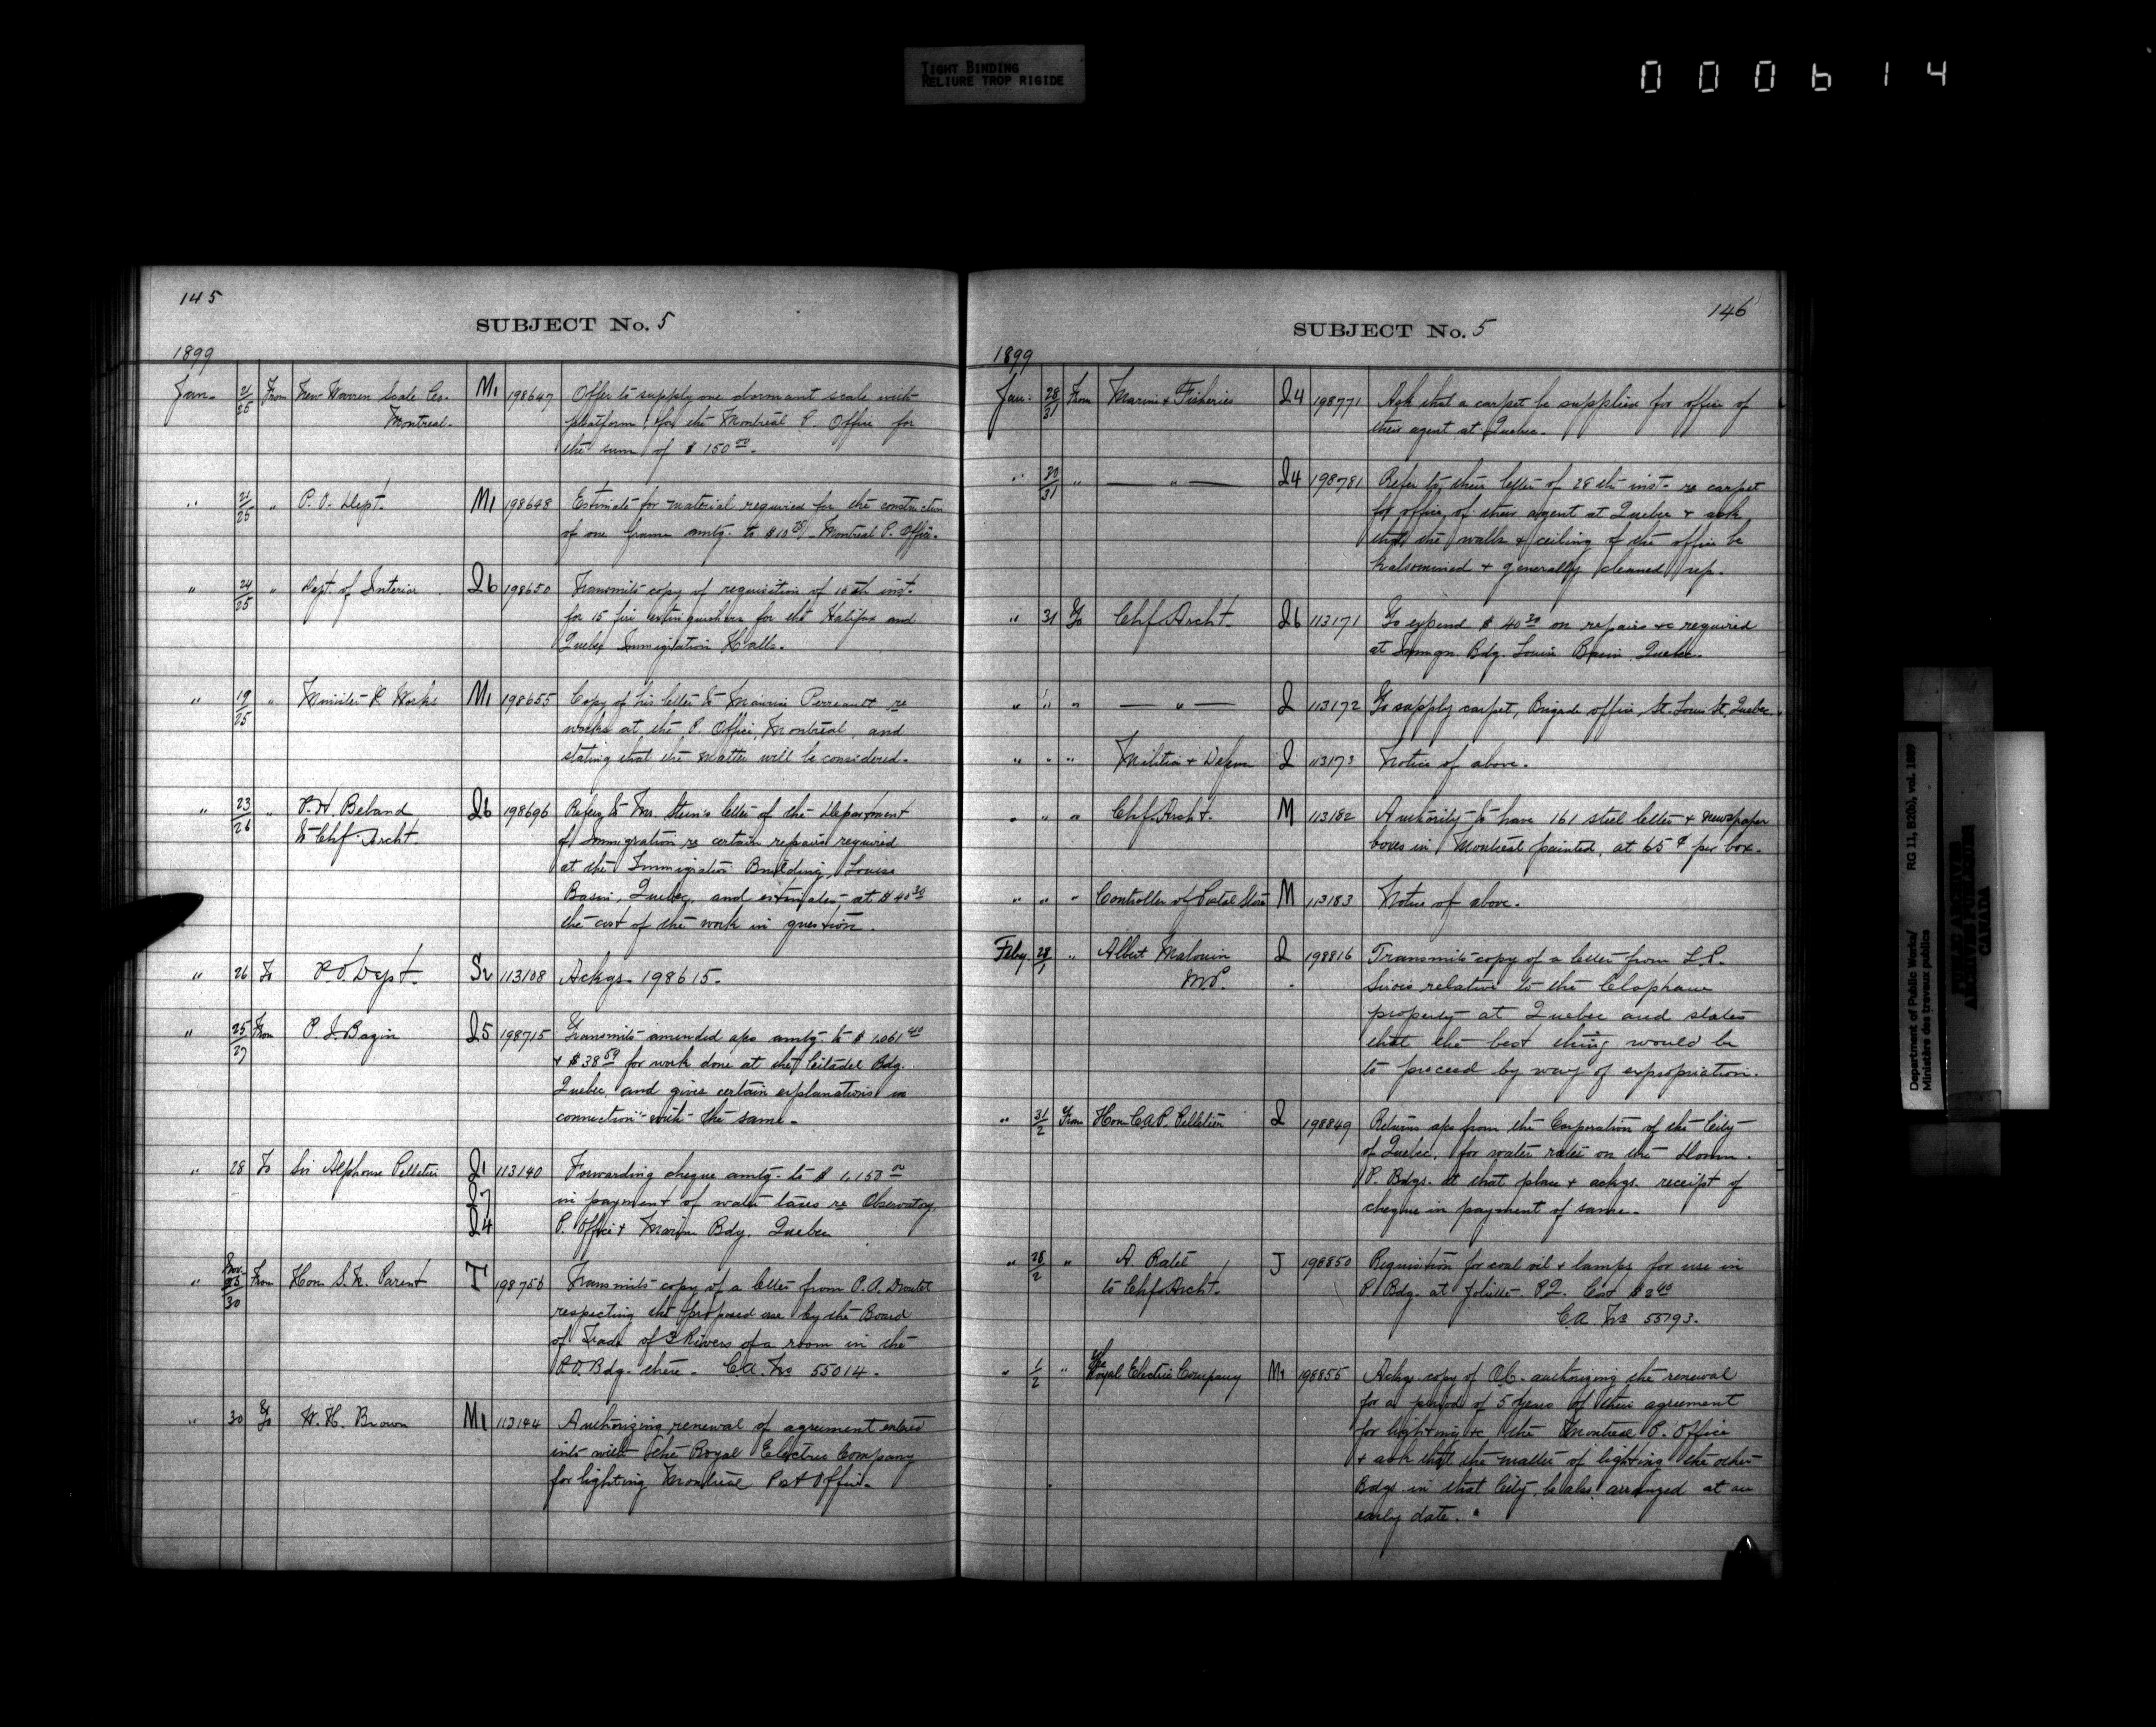 TIGHT BINDING
RELIURE TROP RIGIDE
000614
145
SUBJECT No. 5
1899
Jan. 21/25 From New Warren Scale Co. M1 198647 Offer to supply one dormant scale with
Montreal. platform for the Montreal P. Office for
the sum of $150.00.
" 21/25 " P. O. Dept. M1 198648 Estimate for material required for the construction
of one frame amtg. to $10 Montreal P. Office.
" 24/25 " Dept. of Interior Q6 198650 Transmits copy of requisition of 10th inst.
for 15 fire extinguishers for the Halifax and
Quebec Immigration Halls.
" 19/25 " Minister P. Works M1 198655 Copy of his letter to Maurice Perreault re
works at the P. Office, Montreal, and
stating that the matter will be considered.
" 23/26 " P. H. Beland Q6 198696 Refers to Mr. Stein's letter of the Department
to Chf Archt. of Immigration re certain repairs required
at the Immigration Building, Louise
Basin, Quebec, and estimates at $40.30
the cost of the work in question.
" 26 To P. O. Dept. 113108 Ackgs. 198615.
" 25/27 From P. J. Bazin Q5 198715 Transmits amended aps amtg. to $1,061.40
+ $38.59 for work done at the Citadel Bdg.
Quebec, and gives certain explanations in
connection with the same.
" 28 To Sir Alphonse Pelletier Q1 113140 Forwarding cheque amtg. to $1,150.00
Q7 in payment of water taxes re Observatory,
Q4 P. Office & Marine Bdg. Quebec
" Nov. /30 From Hon S. N. Parent T 198756 Transmits copy of a letter from P. A. Droulet
respecting the proposed use by the Board
of Trade of 3 Rivers of a room in the
P.O. Bdg. there. C.A. No 55014.
" 30 To W. H. Brown M1 113144 Authorizing renewal of agreement entered
into with the Royal Electric Company
for lighting Montreal Post Office.
146
SUBJECT No. 5
1899
Jan. 28/31 From Marine & Fisheries Q4 198771 Ask that a carpet be supplied for office of
their agent at Quebec.
" 30/31 " — " — Q4 198781 Refer to their letter of 28th inst. re carpet
for office of their agent at Quebec & ask
that the walls & ceiling of the office be
kalsomined & generally cleaned up.
" 31 To Chf Archt. Q6 113171 To expend $40.30 on repairs &c required
at Immgn Bdg. Louise Basin. Quebec.
" " " — " — Q 113172 To supply carpet, Brigade office, St. Louis St. Quebec.
" " " Militia & Defence Q 113173 Notice of above.
" " " Chf Archt. M 113182 Authority to have 161 steel letter & newspaper
boxes in Montreal painted, at 65¢ per box.
" " " Controller of Postal Stores M 113183 Notice of above.
Feby. /1 " Albert Malouin Q 198816 Transmits copy of a letter from L.P.
M.P. Sirois relative to the Clapham
property at Quebec and states
that the best thing would be
to proceed by way of expropriation.
" 31/2 From Hon C.A.P. Pelletier Q 198849 Returns aps from the Corporation of the City
of Quebec, for water rates on the Domn.
P. Bdgs. at that place & ackgs. receipt of
cheque in payment of same.
" 28/2 " A. Ratel J 198850 Requisition for coal oil & lamps for use in
to Chf Archt. P. Bdg. at Joliette P.Q. Cost $2.40
C.A. No 55793.
" 1/2 " The Royal Electric Company M1 198855 Ackgs. copy of O.C. authorizing the renewal
for a period of 5 years of their agreement
for lighting &c the Montreal P. Office
& ask that the matter of lighting the other
Bdgs. in that City be also arranged at an
early date.
Department of Public Works/ RG 11, B2(b), vol. 1889
Ministère des travaux publics
PUBLIC ARCHIVES
ARCHIVES PUBLIQUES
CANADA